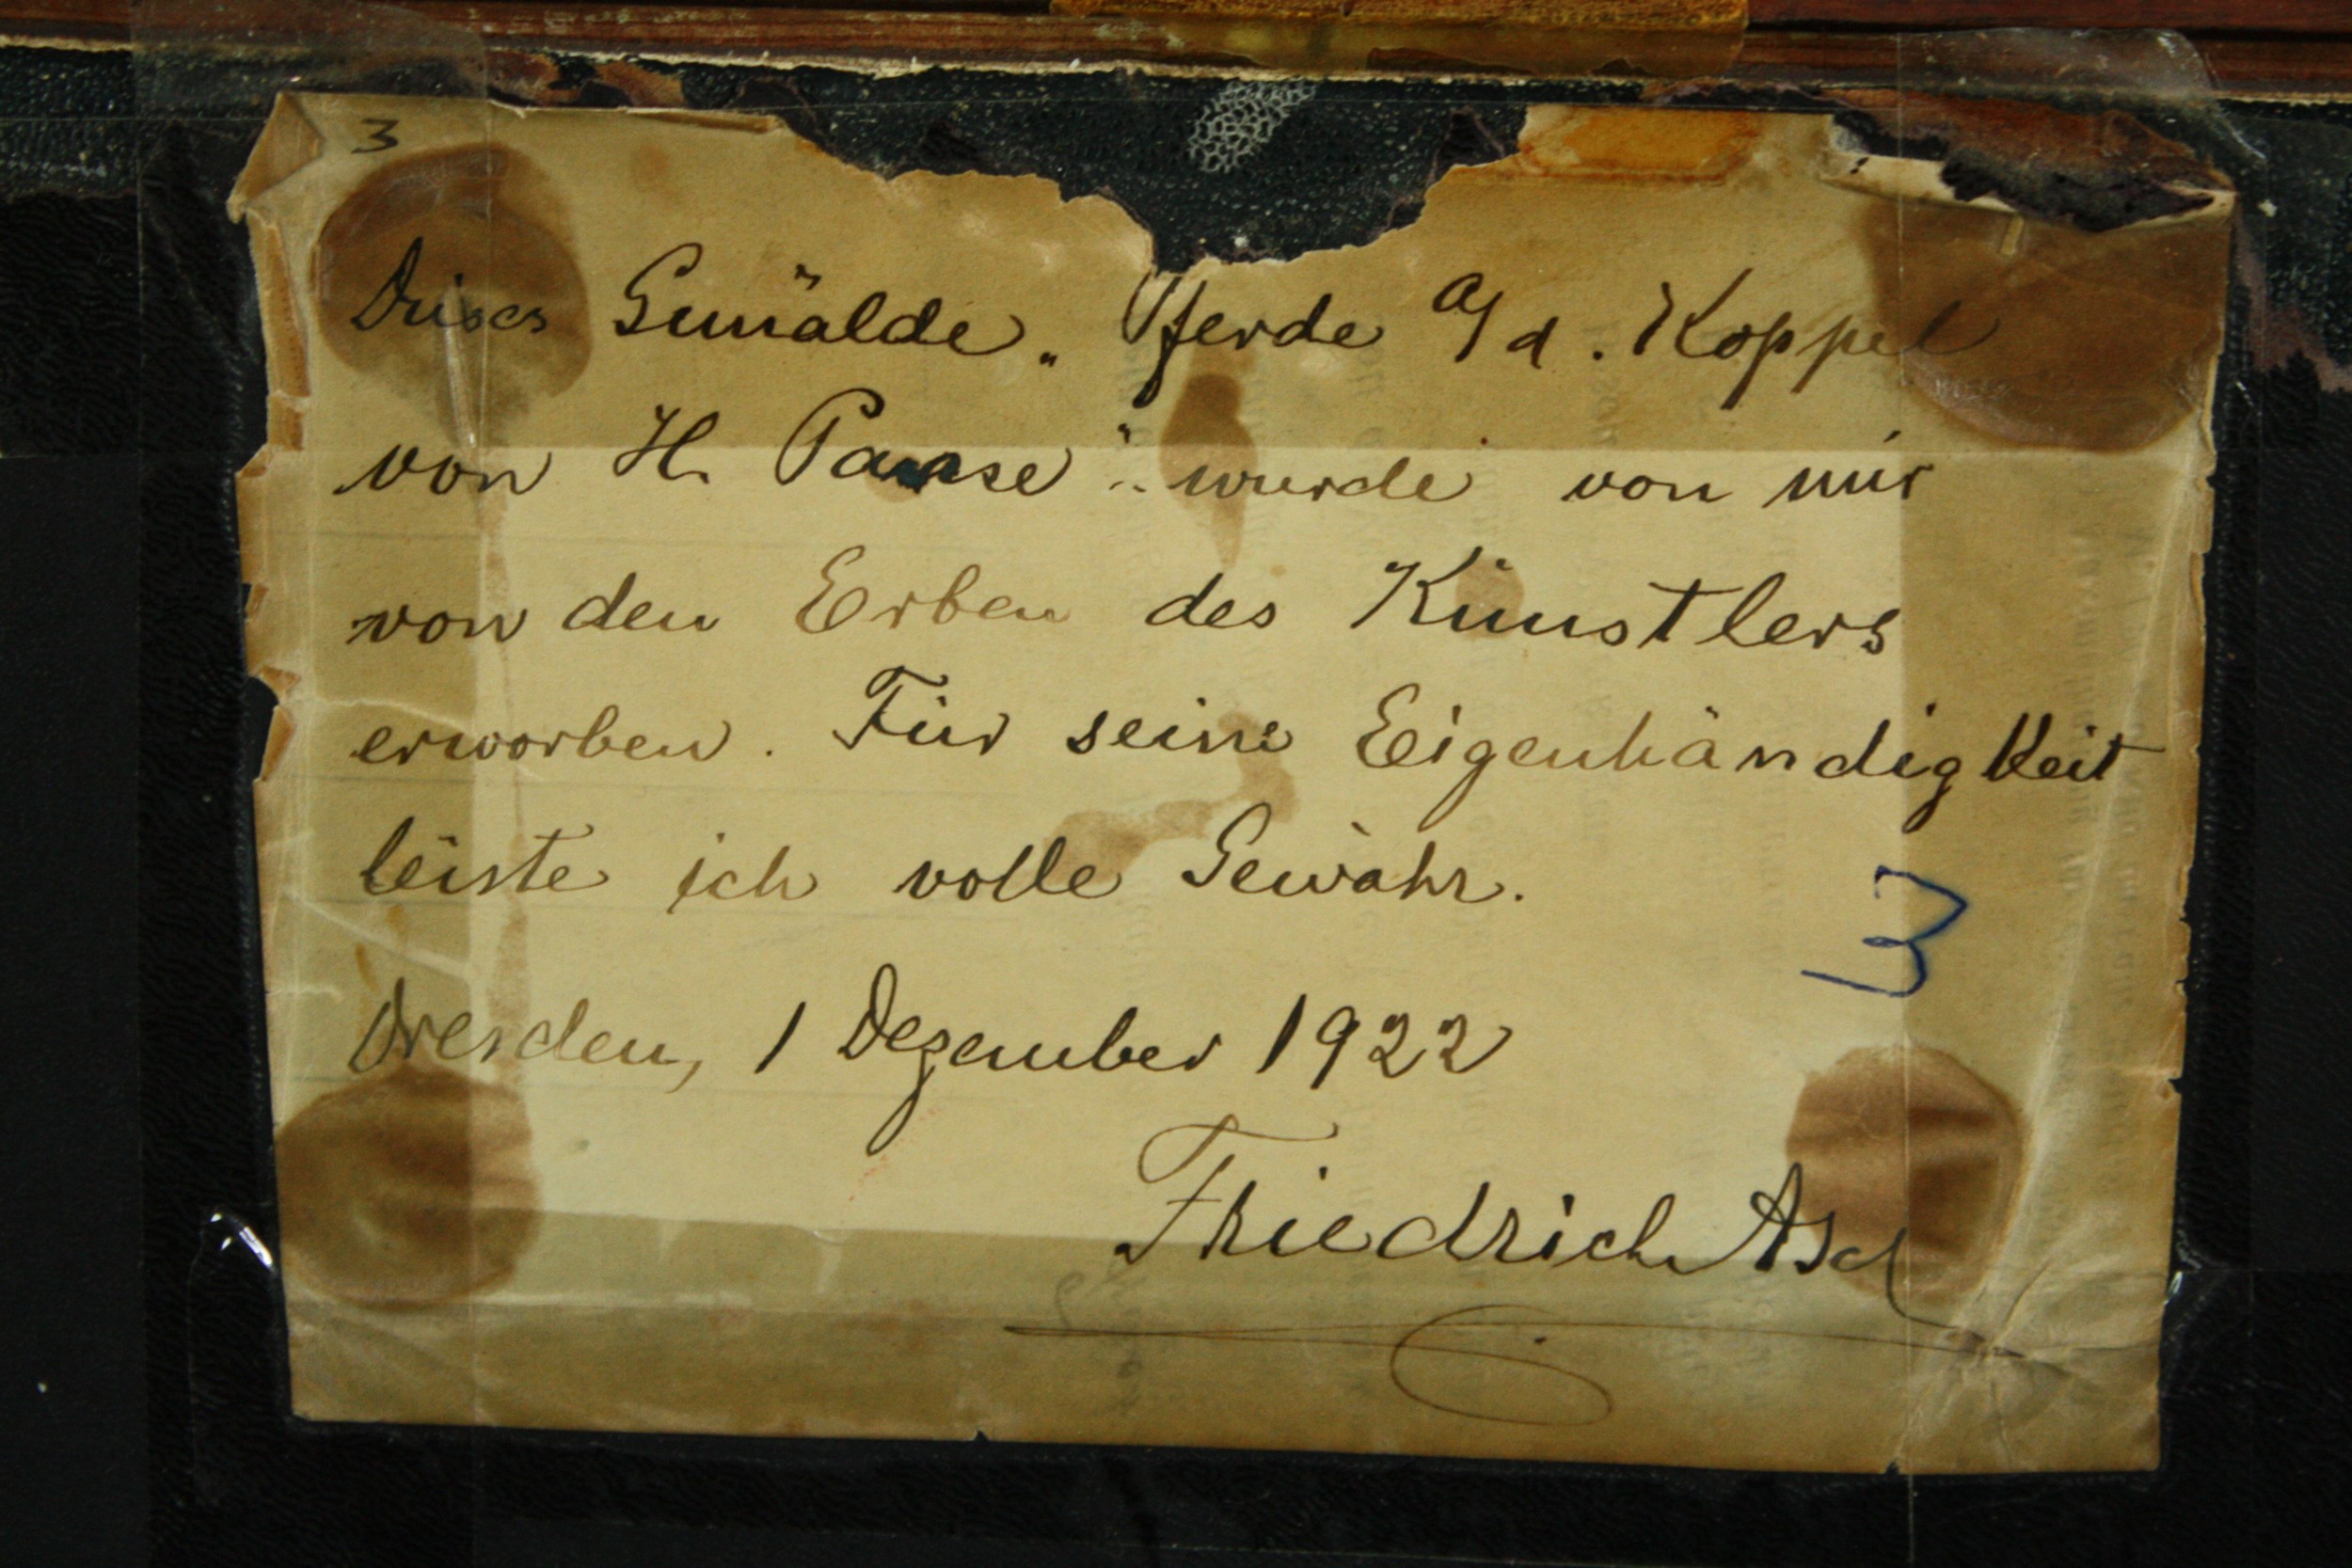 3
Dieses Gemälde „Pferde a/d. Koppel
von H. Panse" wurde von mir
von den Erben des Künstlers
erworben. Für seine Eigenhändigkeit
leiste ich volle Gewähr.
3
Dresden, 1 Dezember 1922
Friedrich